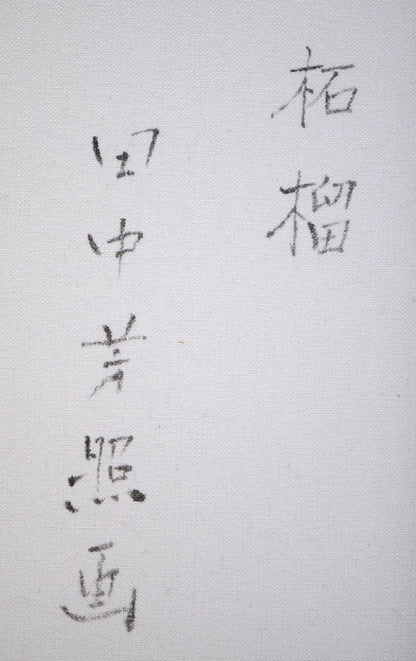 柘榴
田中芳照画